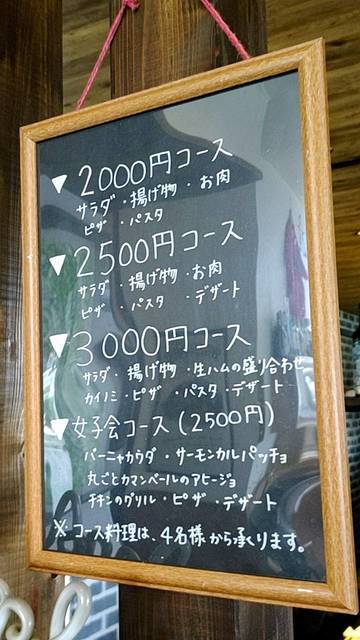 ▼2000円コース
サラダ・揚げ物・お肉
ピザ・パスタ
▼2500円コース
サラダ・揚げ物・お肉
ピザ・パスタ・デザート
▼3000円コース
サラダ・揚げ物・生ハムの盛り合わせ
カイノミ・ピザ・パスタ・デザート
▼女子会コース(2500円)
バーニャカウダ・サーモンカルパッチョ
丸ごとカマンベールのアヒージョ
チキンのグリル・ピザ・デザート
※コース料理は、4名様から承ります。